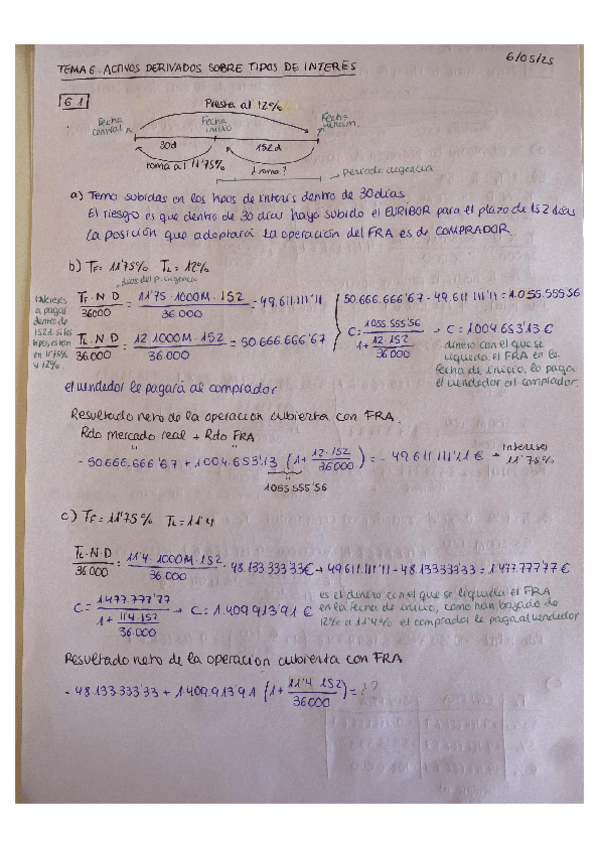 6/05/25
TEMA 6: ACTIVOS DERIVADOS SOBRE TIPOS DE INTERÉS
6.1
Presta al 12%
Fecha contrat.
Fecha inicio
Fecha vencim.
30d 152d
toma al 11'75% ¿toma?
periodo vigencia
a) Teme subidas en los tipos de interés dentro de 30 días
El riesgo es que dentro de 30 días haya subido el EURIBOR para el plazo de 152 días
La posición que adoptará la operación del FRA es de COMPRADOR
b) TF = 11'75% TL = 12%
días del p. vigencia
intereses a pagar dentro de 152d si los tipos están en 11'75% y 12%
TF·N·D / 36000 = 11'75·1000M·152 / 36.000 = 49.611.111'11
TL·N·D / 36000 = 12·1000M·152 / 36.000 = 50.666.666'67
50.666.666'67 - 49.611.111'11 = 1.055.555'56
C = 1055.555'56 / 1 + 12·152 / 36.000 → C = 1.004.653'13 €
dinero con el que se
liquida el FRA en la
fecha de inicio, lo paga
el vendedor al comprador.
el vendedor le pagará al comprador
Resultado neto de la operación cubierta con FRA.
Rdo mercado real + Rdo FRA
- 50.666.666'67 + 1.004.653'13 (1 + 12·152 / 36000) = - 49.611.111'11 € → intereses 11'75%
1.055.555'56
c) TF = 11'75% TL = 11'4
TL·N·D / 36000 = 11'4·1000M·152 / 36.000 = 48.133.333'33€ → 49.611.111'11 - 48.133.333'33 = 1.477.777'77 €
C = 1.477.777'77 / 1 + 11'4·152 / 36.000 → C = 1.409.913'91 €
es el dinero con el que se liquida el FRA
en la fecha de inicio, como han bajado de
12% a 11'4% el comprador le paga al vendedor
Resultado neto de la operación cubierta con FRA
- 48.133.333'33 + 1.409.913'91 (1 + 11'4·152 / 36000) = ¿?